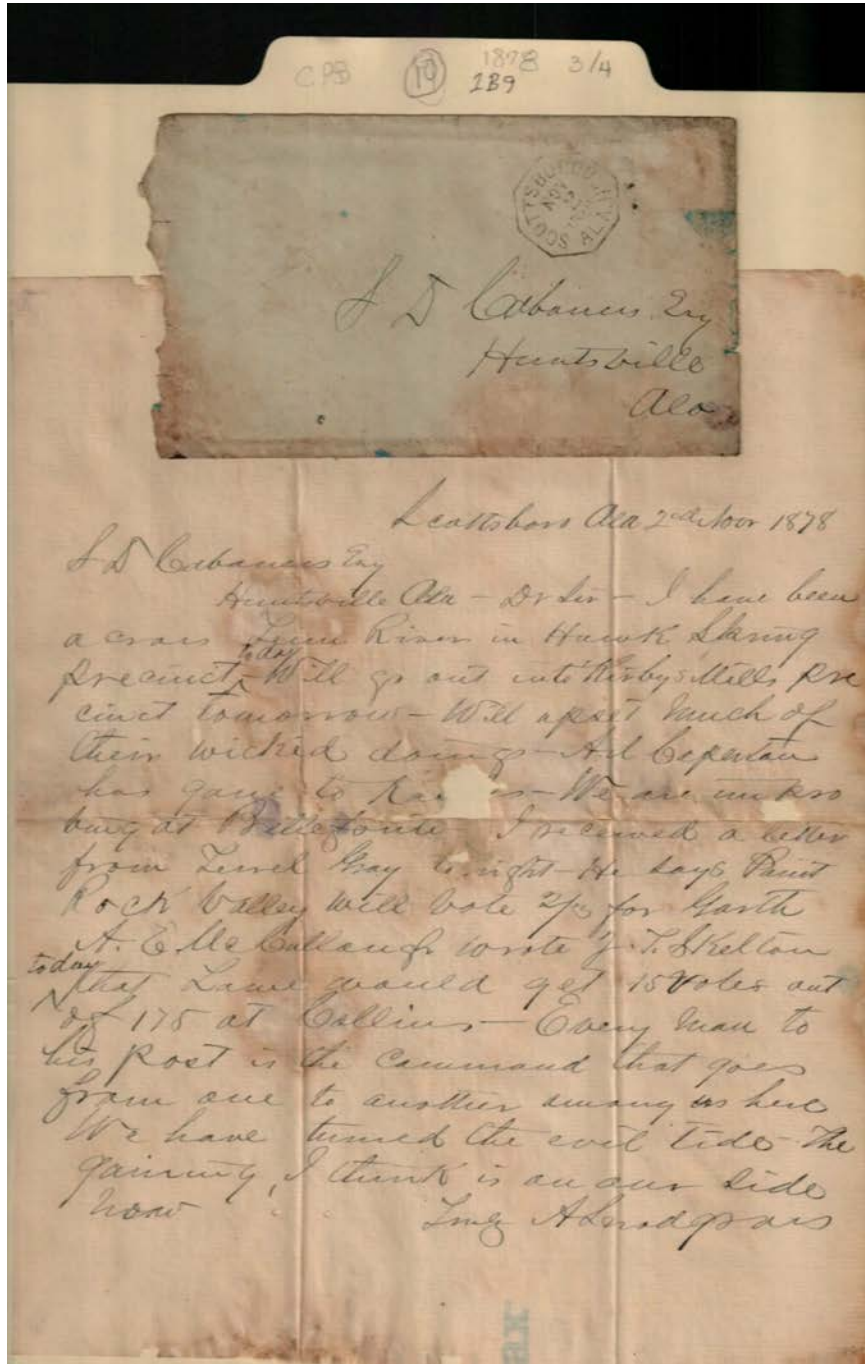 CPB 10 1878 3/4
1B9
SCOTTSBORO ALA NOV
S D Cabaniss Esq
Huntsville
Ala
Scottsboro Ala 2nd Nov 1878
S D Cabaniss Esq
Huntsville Ala - Dr Sir - I have been
across Tenn River in Hawk Spring
precinct today - Will go out into Kirbys Mills pre
cinct tomorrow - Will upset much of
their wicked doings - Ad Caperton
has gone to - We are
at Bellefonte - I received a letter
from Gray tonight - He says Paint
Rock Valley will vote 2/3 for Garth
A. E. McCullough wrote J. T. Skelton
today that Lowe would get 15 votes out
of 175 at Collins - Every man to
his post is the command that goes
from one to another among us here
We have turned the evil tide - The
gaining, I think is on our side
now Truly A Snodgrass